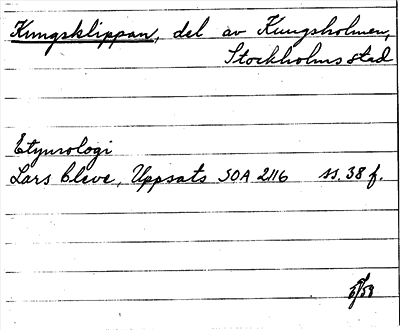 Kungsklippan, del av Kungsholmen,
Stockholms stad
Etymologi
Lars Cleve, Uppsats SOA 2116 ss. 38 f.